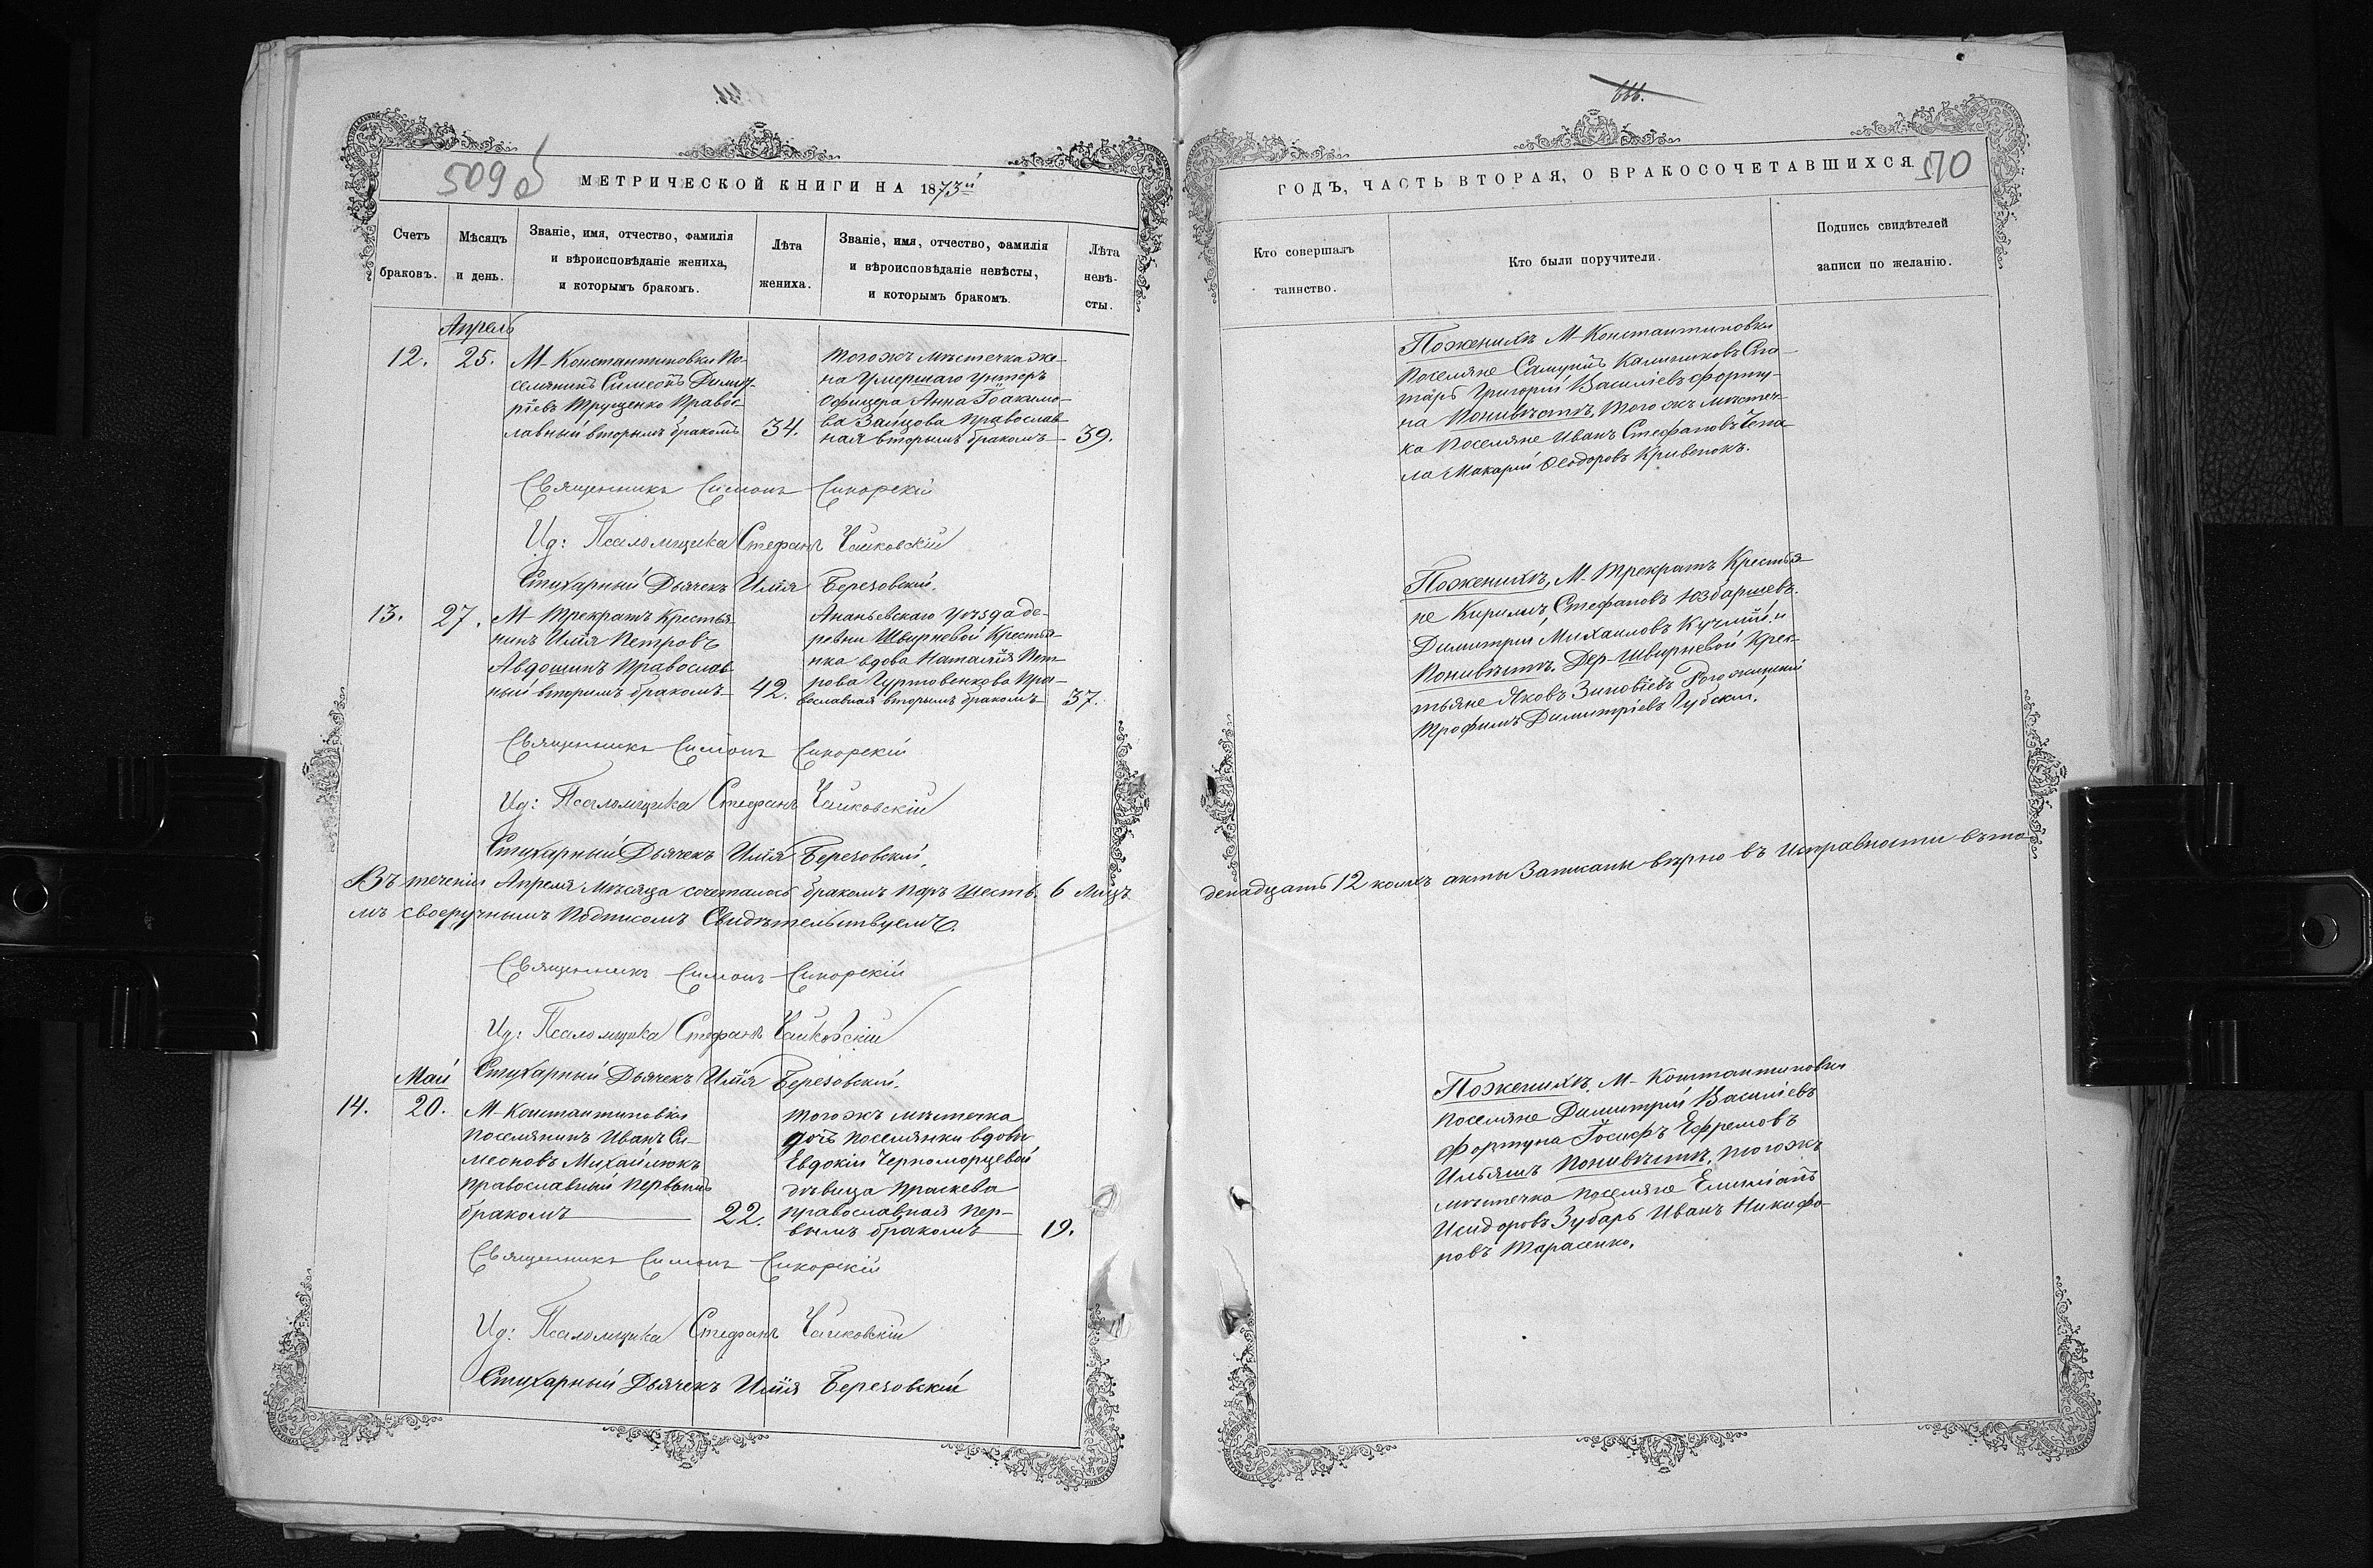 509 б
МЕТРИЧЕСКОЙ КНИГИ НА 1873й
Счетъ
браковъ.
Мѣсяцъ
и день.
Званіе, имя, отчество, фамилія
и вѣроисповѣданіе жениха,
и которымъ бракомъ.
Лѣта
жениха.
Званіе, имя, отчество, фамилія
и вѣроисповѣданіе невѣсты,
и которымъ бракомъ.
Лѣта
невѣ-
сты.
Апрель
12.
25.
М-Константиновки По-
селянинъ Симеонъ Димит-
ріевъ Трущенко Правос-
лавный вторымъ бракомъ
34.
тогожъ мѣстечка же-
на Умершаго Унтеръ
Офицера Анна Іоакимо-
ва Зайцова Православ-
ная вторымъ бракомъ
39.
Священникъ Симонъ Сикорскій
Ид: Псаломщика Стефанъ Чайковскій
Стихарный Дьячекъ Илія Березовскій.
13.
27.
М-Трекратъ Крестья-
нинъ Илія Петровъ
Авдошинъ Православ-
ный вторымъ бракомъ
42.
Ананьевскаго Уѣзда де-
ревни Швирневой Крестья-
нка вдова Наталія Пет-
рова Гуртовенкова Пра-
вославная вторымъ бракомъ
37.
Священникъ Симонъ Сикорскій
Ид: Псаломщика Стефанъ Чайковскій
Стихарный Дьячекъ Илія Березовскій.
Въ теченіи Апреля мѣсяца сочеталось бракомъ паръ шесть 6 лицъ
мъ своеручнымъ Подписомъ Свидѣтельствуемъ.
Священникъ Симонъ Сикорскій
Ид: Псаломщика Стефанъ Чайковскій
Стихарный Дьячекъ Илія Березовскій.
Май
14.
20.
М-Константиновки
поселянинъ Иванъ Си-
меоновъ Михайлюкъ
православный первымъ
бракомъ
22.
тогожъ мѣстечка
дочь поселянки вдовы
Евдокіи Черноморцевой
дѣвица Праскева
православная пер-
вымъ бракомъ
19.
Священникъ Симонъ Сикорскій
Ид: Псаломщика Стефанъ Чайковскій
Стихарный Дьячекъ Илія Березовскій
666.
510
ГОДЪ, ЧАСТЬ ВТОРАЯ, О БРАКОСОЧЕТАВШИХСЯ
Кто совершалъ
таинство.
Кто были поручители.
Подпись свидѣтелей
записи по желанію.
Поженихѣ М-Константиновки
Поселяне Самуилъ Калиниковъ Сла-
таръ Григорій Василіевъ Форту-
на Понивѣстѣ, тогожъ мѣстеч-
ка Поселяне Иванъ Стефановъ Чепа-
ла Макарій Ѳеодоровъ Кривенокъ.
Поженихѣ, М-Трекратъ Крестья-
не Кириллъ Стефановъ Юзбаршевъ.
Димитрій Михаиловъ Кучмій и
Понивѣстѣ. Дер-Швирневой Крес-
тьяне Яковъ Зиновіевъ Рогожинскій
Трофимъ Димитріевъ Губскій.
денадцать 12 коихъ акты Записаны вѣрно въ исправности въ то-
Поженихѣ. М-Константиновки
поселяне Димитрій Василіевъ
Фортуна Іосифъ Ефремовъ
Ильяшъ Понивѣстѣ, тогожъ
мѣстечка поселяне Емиліанъ
Исидоровъ Зубаръ Иванъ Никифо-
ровъ Тарасенко.